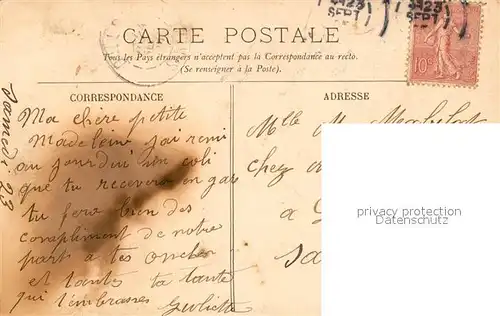 23
SEPT
23
SEPT
CARTE POSTALE
Tous les Pays étrangers n'acceptent pas la Correspondance au recto.
(Se renseigner à la Poste).
10c
CORRESPONDANCE
ADRESSE
Samedi 23
Ma chère petite
Madeleine j'ai remi
au jourdui un coli
que tu recevera en gar
tu fera bien des
compliment de notre
part a tes oncles
et tantes ta tante
qui t'embrasses Juliette
Mlle M.
chez
a
privacy protection
Datenschutz